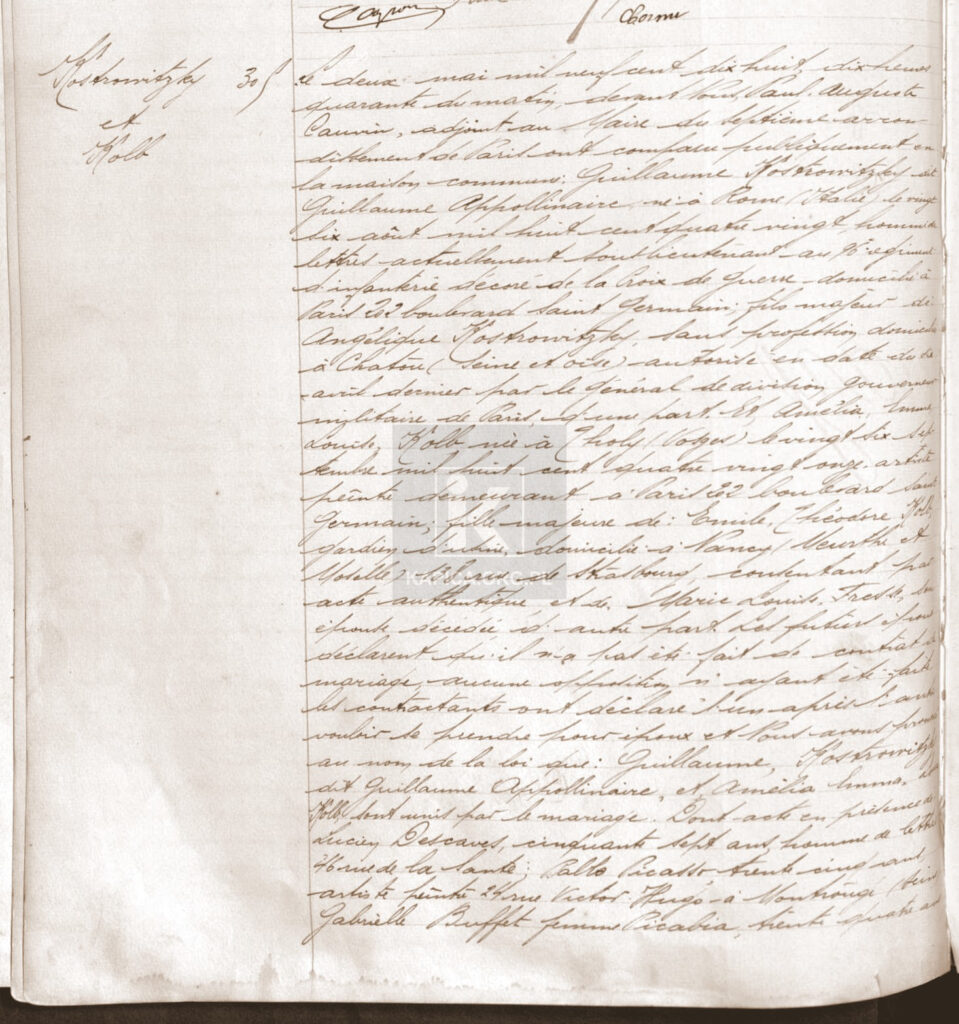 Cayron
Chorme
Kostrowitzky 305
et
Kolb
Le deux mai mil neuf cent dix huit, dix heures
quarante du matin, devant Nous, Paul Auguste
Cauvin, adjoint au Maire du septième arron-
dissement de Paris ont comparu publiquement en
la maison commune: Guillaume Kostrowitzky dit
Guillaume Appollinaire né à Rome (Italie) le vingt
six août mil huit cent quatre vingt, homme de
lettres actuellement sous lieutenant au régiment
d'infanterie décoré de la Croix de Guerre domicilié à
Paris 202 boulevard Saint Germain; fils majeur de
Angélique Kostrowitzky, sans profession, domiciliée
à Chatou (Seine et Oise) autorisé en date du
avril dernier par le Général de division gouverneur
militaire de Paris, d'une part. Et Amélia, Emma
Louise, Kolb née à Tholy (Vosges) le vingt six sep-
tembre mil huit cent quatre vingt onze artiste
peintre demeurant à Paris 202 boulevard Saint
Germain; fille majeure de: Emile, Théodore Kolb
gardien domicilié à Nancy (Meurthe et
Moselle) de Strasbourg, consentant par
acte authentique et de Marie Louise son
épouse décédée d'autre part. Les futurs époux
déclarent qu'il n'a pas été fait de contrat de
mariage, aucune opposition n'ayant été faite
les contractants ont déclaré l'un après l'autre
vouloir se prendre pour époux et Nous avons prononcé
au nom de la loi que: Guillaume, Kostrowitzky
dit Guillaume Appollinaire, et Amélia Emma,
Kolb sont unis par le mariage. Dont acte en présence de
Lucien Descaves, cinquante sept ans, homme de lettres
46 rue de la Santé; Pablo Picasso trente cinq ans,
artiste peintre 24 rue Victor Hugo à Montrouge (Seine
Gabrielle Buffet femme Picabia, trente quatre ans
KAPICA.ORG.PL